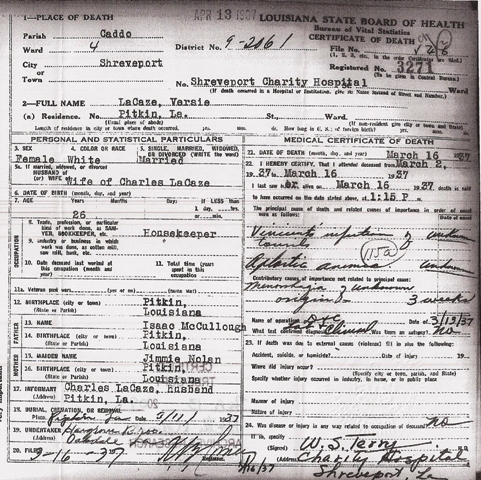 1—PLACE OF DEATH
APR 13 1937
LOUISIANA STATE BOARD OF HEALTH
Bureau of Vital Statistics
CERTIFICATE OF DEATH
Parish Caddo
Ward 4
District No. 9-2061
File No.
City Shreveport
or Town
Registered No. 3271
(To be given in Central Bureau.)
No. Shreveport Charity Hospital Ward
(If death occurred in a Hospital or Institution, give its Name instead of Street and Number.)
2—FULL NAME LaCaze, Versie
(a) Residence. No. Pitkin, La. St., Ward.
(Usual place of abode) (If non-resident give city or town and State)
Length of residence in city or town where death occurred. yrs. mos. ds. How long in U. S. if of foreign birth? yrs. mos. ds.
PERSONAL AND STATISTICAL PARTICULARS
3. SEX 4. COLOR OR RACE 5. SINGLE, MARRIED, WIDOWED, OR DIVORCED (WRITE the word)
Female White Married
5a. If married, widowed, or divorced
HUSBAND of
(or) WIFE of Wife of Charles LaCaze
6. DATE OF BIRTH (month, day, and year)
7. AGE Years Months Days If LESS than
1 day, hrs.
26 or min.
OCCUPATION
8. Trade, profession, or particular kind of work done, as SAWYER, BOOKKEEPER, etc. Housekeeper
9. Industry or business in which work was done, as cotton mill, saw mill, bank, etc.
10. Date deceased last worked at this occupation (month and year)
11. Total time (years) spent in this occupation
11a. Veteran past wars (yes or no)
12. BIRTHPLACE (city or town) Pitkin,
(State or Parish) Louisiana
FATHER
13. NAME Isaac McCullough
14. BIRTHPLACE (city or town) Pitkin,
(State or Parish) Louisiana
MOTHER
15. MAIDEN NAME Jimmie Nolan
16. BIRTHPLACE (city or town) Pitkin,
(State or Parish) Louisiana
17. INFORMANT Charles LaCaze, Husband
(Address) Pitkin, La.
18. BURIAL, CREMATION, OR REMOVAL
Place Date 1937
19. UNDERTAKER
(Address) Oakdale
20. FILED 3-16-37
Registrar.
MEDICAL CERTIFICATE OF DEATH
21. DATE OF DEATH (month, day, and year) March 16 1937
22. I HEREBY CERTIFY, That I attended deceased from March 2,
1937 to March 16 1937
I last saw her alive on March 16 1937 death is said
to have occurred on the date stated above, at 1:15 P m.
The principal cause of death and related causes of importance in order of onset were as follows:
unknown
115a
unknown
Contributory causes of importance not related to principal cause:
unknown
origin 3 weeks
Name of operation D+C Date of 3/13/37
What test confirmed diagnosis? Clinical Was there an autopsy? No
23. If death was due to external causes (violence) fill in also the following:
Accident, suicide, or homicide? Date of injury 19
Where did injury occur?
(Specify city or town, parish, and State)
Specify whether injury occurred in industry, in home, or in public place
Manner of injury
Nature of injury
24. Was disease or injury in any way related to occupation of deceased? no
If so, specify
(Signed) W. S. Kerry
(Address) Charity Hospital
Shreveport, La